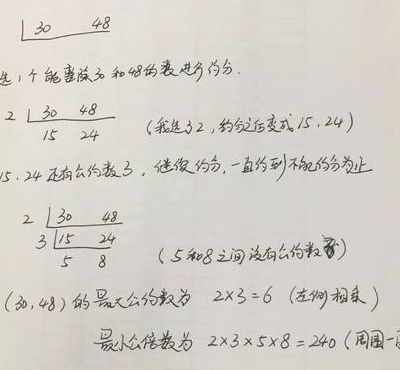 30 48
选1个能整除30和48的数进行约分.
2 30 48
15 24 (我选了2,约分之后变成15.24)
15.24还有公约数3,继续约分,一直约到不能约分为止
2 30 48
3 15 24
5 8 (5和8之间没有公约数了)
(30,48)的最大公约数为 2×3=6 (左侧相乘)
最小公倍数为 2×3×5×8=240(周围一